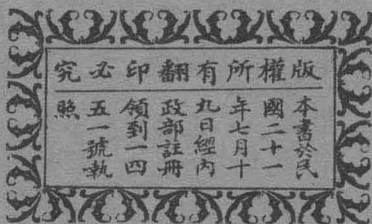 版權所有翻印必究
本書於民
國二十一
年七月十
九日經內
政部註冊
領到一四
五一號執
照